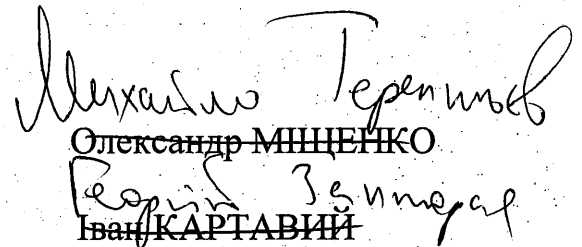 Михайло Терентьєв
Олександр МІЩЕНКО
Георгій
Іван КАРТАВИЙ